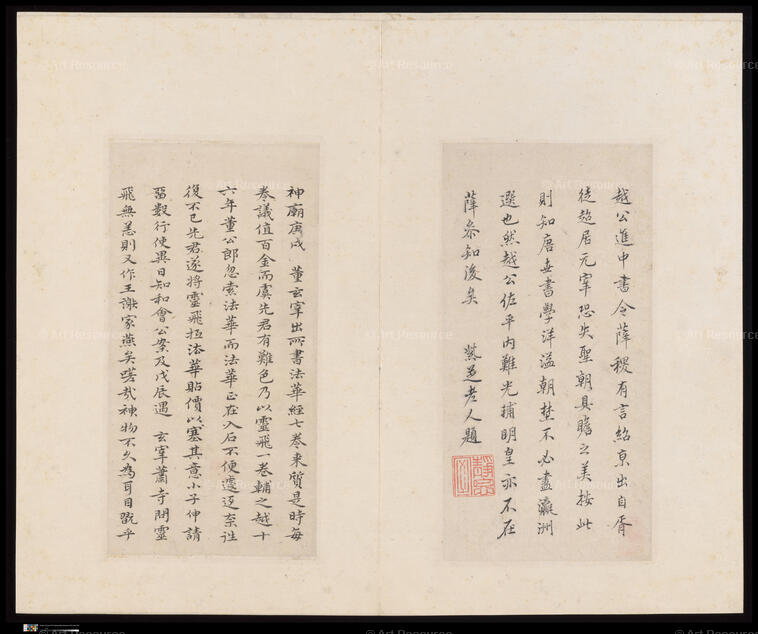 越公進中書令薛稷有言紹京出自胥
徒超居元宰恐失聖朝具瞻之美按此
則知唐世書學洋溢朝埜不必盡瀛洲
選也然越公佐平內難光輔明皇亦不在
薛參知後矣 紫芝老人題
神廟庚戌 董玄宰出所書法華經七卷來質是時每
卷議值百金而虞先君有難色乃以靈飛一卷輔之越十
六年董公郎忽索法華而法華正在入石不便遽返奈誰
復不已先君遂將靈飛抵法華貼價以塞其意小子伸請
留數行使異日知和會公案及戊辰遇 玄宰蕭寺問靈
飛無恙則又作王謝家燕矣嗟哉神物不久為耳目翫乎
© Art Resource
© Art Resource
© Art Resource
© Art Resource
© Art Resource
© Art Resource
© Art Resource
© Art Resource
© Art Resource